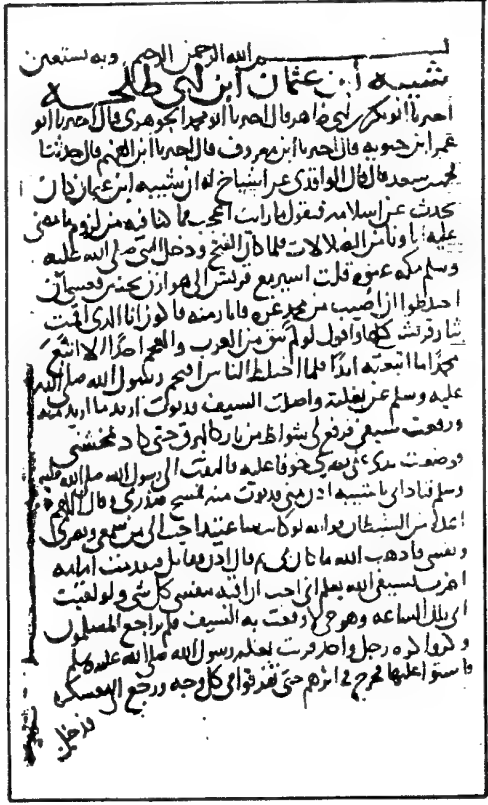 بسم الله الرحمن الرحيم وبه نستعين
شيبه ابن عثمان ابن ابي طلحه
اخبرنا ابو بكر بن ابي طاهر قال اخبرنا ابو محمد الجوهري قال اخبرنا ابو
عمر ابن حيويه قال اخبرنا ابن معروف قال اخبرنا ابن الفهم قال حدثنا
محمد بن سعد قال قال الواقدي عن اشياخ له ان شيبه ابن عثمان كان
يحدث عن اسلامه فيقول ما رايت اعجب مما كنا فيه من لزوم ما مضى
عليه اباونا من الضلالات فلما كان عام الفتح ودخل النبي صلى الله عليه
وسلم مكه عنوه قلت اسير مع قريش الى هوازن بحنين فعسى ان
اختلطوا ان اصيب من محمد غره فاثار منه فاكون انا الذي قمت
بثار قريش كلها واقول لو لم يبق من العرب والعجم احدا الا اتبع
محمدا ما اتبعته ابدا فلما اختلط الناس اقتحم رسول الله صلى الله
عليه وسلم عن بغلته واصلت السيف فدنوت اريد ما اريد منه
ورفعت سيفي فرفع لي شواظ من نار كالبرق حتى كاد يمحشني
فوضعت يدي على بصري خوفا عليه فالتفت الى رسول الله صلى الله عليه
وسلم فنادانى يا شيبه ادن مني فدنوت منه فمسح صدري وقال اللهم
اعذه من الشيطان فوالله لهو كان ساعتيذ احب الي من سمعي وبصري
ونفسي فاذهب الله ما كان بي ثم قال ادن فقاتل فتقدمت امامه
اضرب بسيفي الله يعلم اني احب ان اقيه بنفسي كل شي ولو لقيت
ابي تلك الساعه وهو حي لاوقعت به السيف فلم تراجع المسلمون
وكروا كره رجل واحد قربت بغله رسول الله صلى الله عليه وسلم
فاستوا عليها فخرج في اثرهم حتى تفرقوا في كل وجه ورجع الى معسكره
فدخل